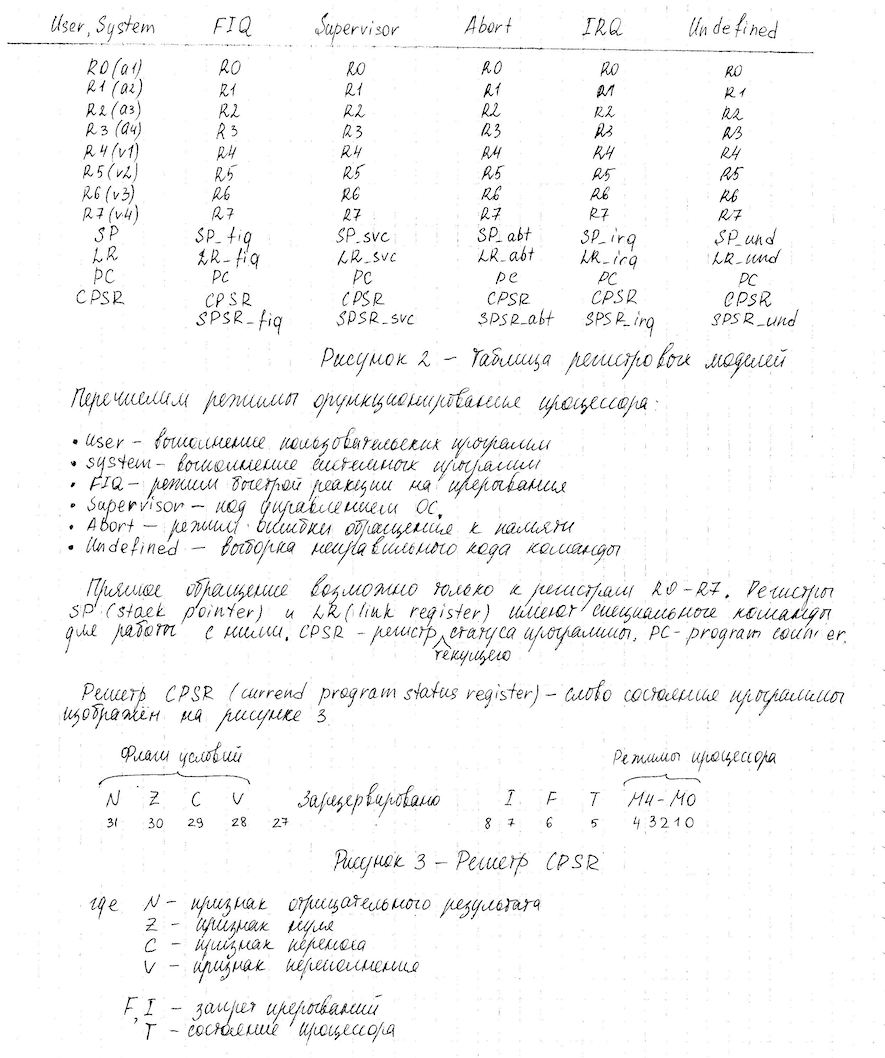 User, System FIQ Supervisor Abort IRQ Undefined
R0 (a1) R0 R0 R0 R0 R0
R1 (a2) R1 R1 R1 R1 R1
R2 (a3) R2 R2 R2 R2 R2
R3 (a4) R3 R3 R3 R3 R3
R4 (v1) R4 R4 R4 R4 R4
R5 (v2) R5 R5 R5 R5 R5
R6 (v3) R6 R6 R6 R6 R6
R7 (v4) R7 R7 R7 R7 R7
SP SP_fiq SP_svc SP_abt SP_irq SP_und
LR LR_fiq LR_svc LR_abt LR_irq LR_und
PC PC PC PC PC PC
CPSR CPSR CPSR CPSR CPSR CPSR
SPSR_fiq SPSR_svc SPSR_abt SPSR_irq SPSR_und
Рисунок 2 – Таблица регистровых моделей
Перечислим режимы функционирования процессора:
• User – выполнение пользовательских программ
• system – выполнение системных программ
• FIQ – режим быстрой реакции на прерывания
• Supervisor – под управлением ОС.
• Abort – режим ошибки обращения к памяти
• Undefined – выборка неправильного кода команды
Прямое обращение возможно только к регистрам R0-R7. Регистры
SP (stack pointer) и LR (link register) имеют специальные команды
для работы с ними. CPSR – регистр текущего статуса программы, PC – program counter.
Регистр CPSR (currend program status register) – слово состояние программы
изображён на рисунке 3
Флаги условий Режимы процессора
N Z C V Зарезервировано I F T M4-M0
31 30 29 28 27 8 7 6 5 4 3 2 1 0
Рисунок 3 – Регистр CPSR
где N – признак отрицательного результата
Z – признак нуля
C – признак переноса
V – признак переполнения
F, I – запрет прерываний
T – состояние процессора